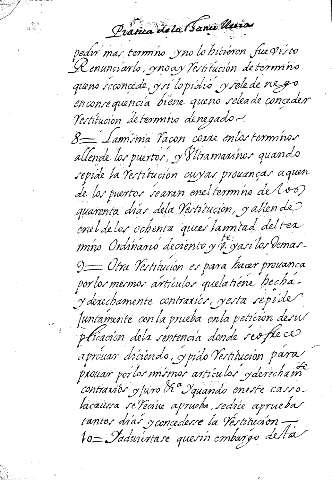 Pratica de la
pedir mas termino y no lo hicieron fue visto
Renunciarlo, y no ay Restitucion de termino
que no se concede, y si lo pidio, y se le denego
en consequencia viene que no se le a de conceder
Restitucion de termino denegado
8 = La misma raçon corre en los terminos
allende los puertos, y Ultramarinos quando
se pide la Restitucion cuyas provanças aquen
de los puertos seran en el termino de los
quarenta dias de la Restitucion, y allende
en el de los ochenta que es la mitad del ter
mino Ordinario de ciento y y asi los demas
9 = Otra Restitucion es para hacer provança
por los mesmos articulos que la tiene hecha
y derechamente contrarios, y esta se pide
juntamente con la prueba en la peticion de su
plicacion de la sentencia donde se ofrece
a provar diciendo, y pido Restitucion para
provar por los mismos articulos y derecham.te
contrarios y juro Y quando en este casso
la caussa se recive a prueba, se dice a prueba
tantos dias y concedesse la Restitucion
10 = Y adviertase que sin embargo de la